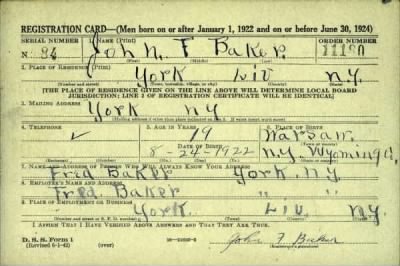 REGISTRATION CARD—(Men born on or after January 1, 1922 and on or before June 30, 1924)
SERIAL NUMBER 1. NAME (Print) ORDER NUMBER
N 84 John F Baker 11180
(First) (Middle) (Last)
2. PLACE OF RESIDENCE (Print)
York Liv N.Y.
(Number and street) (Town, township, village, or city) (County) (State)
[THE PLACE OF RESIDENCE GIVEN ON THE LINE ABOVE WILL DETERMINE LOCAL BOARD
JURISDICTION; LINE 2 OF REGISTRATION CERTIFICATE WILL BE IDENTICAL]
3. MAILING ADDRESS
York NY
4. TELEPHONE 5. AGE IN YEARS 6. PLACE OF BIRTH
19 Warsaw
DATE OF BIRTH
8-24-1922 N.Y. Wyoming Co,
7. NAME AND ADDRESS OF PERSON WHO WILL ALWAYS KNOW YOUR ADDRESS
Fred Baker York, N.Y.
8. EMPLOYER'S NAME AND ADDRESS
Fred Baker " "
9. PLACE OF EMPLOYMENT OR BUSINESS
York. Liv NY.
(Number and street or R. F. D. number) (Town) (County) (State)
I AFFIRM THAT I HAVE VERIFIED ABOVE ANSWERS AND THAT THEY ARE TRUE.
D. S. S. Form 1
(Revised 6-1-42) (over) John F Baker